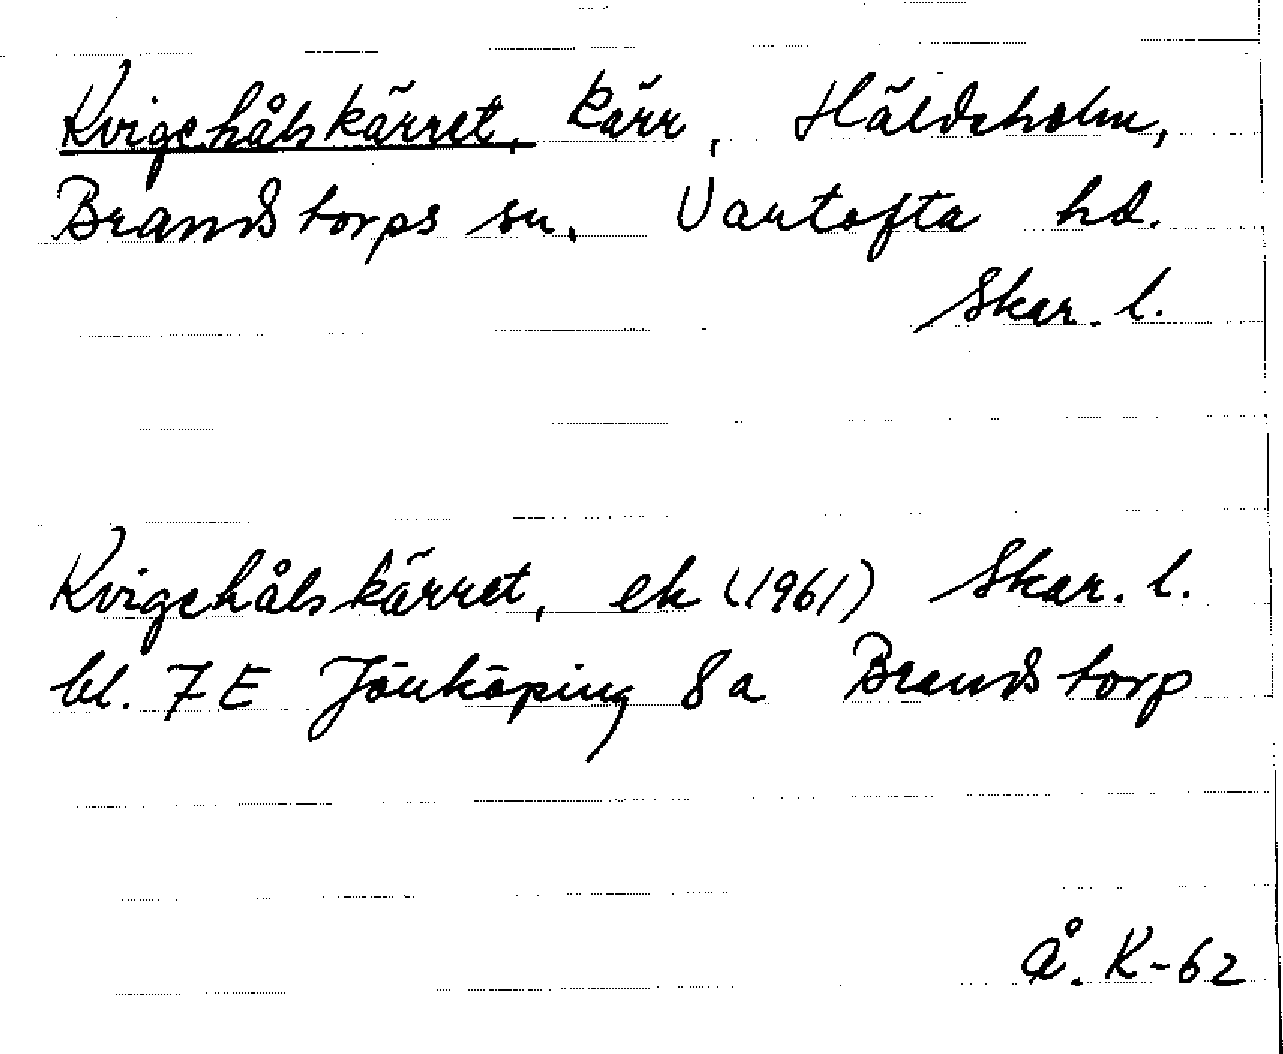 Kvigehålskärret, kärr, Häldeholm,
Brandstorps sn. Vartofta hd.
Skar. l.
Kvigehålskärret, ek (1961) Skar. l.
bl. 7 E Jönköping 8a Brandstorp
Å. K-62